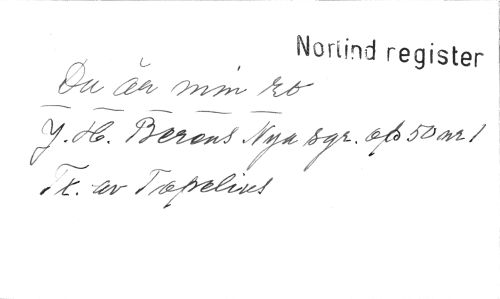 Norlind register
Du är min ro
J. H. Berens Nya sgr. op 50 nr 1
Tx. av Topelius